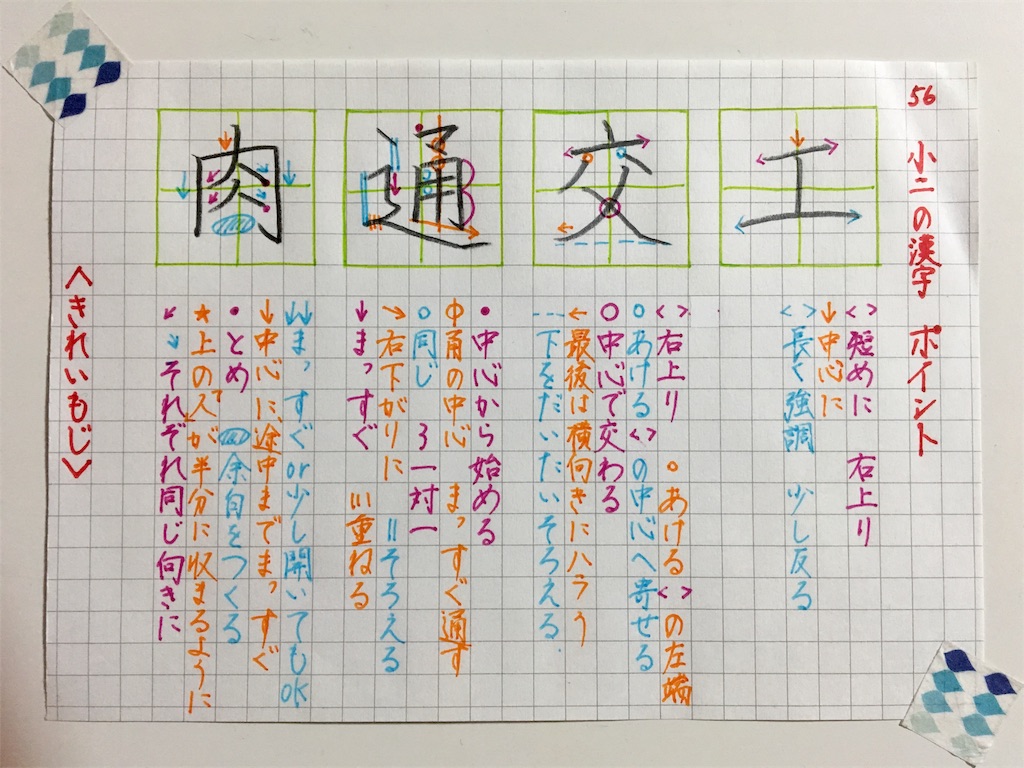 56
小二の漢字 ポイント
工
<>短めに 右上り
↓中心に
<>長く強調 少し反る
交
<>右上り ○あける<>の左端
○あける<>の中心へ寄せる
○中心で交わる
←最後は横向きにハラう
---下をだいたいそろえる
通
・中心から始める
Φ角の中心 まっすぐ通す
○同じ 3一対一
→右下がりに =そろえる
↓まっすぐ 川重ねる
肉
↓↓まっすぐor少し開いてもOK
↓中心に、途中までまっすぐ
・とめ 余白をつくる
★上の「人」が半分に収まるように
↙↘それぞれ同じ向きに
<きれいもじ>